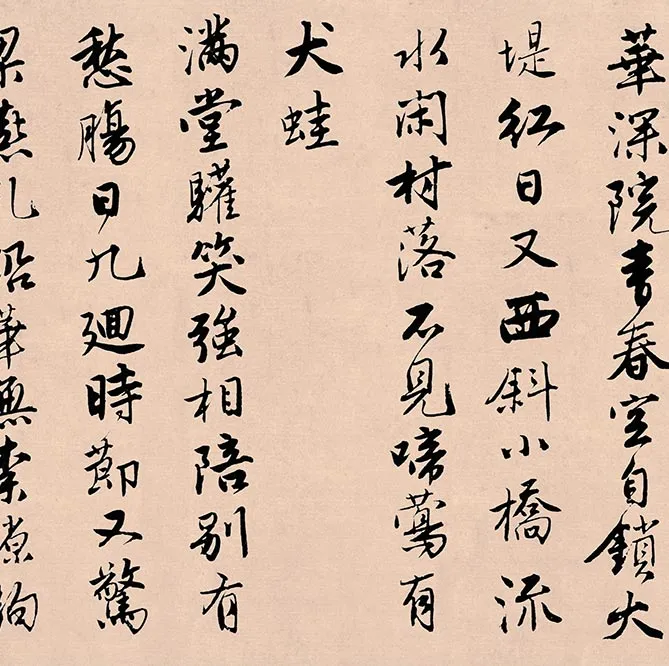 華深院青春空自鎖大
堤紅日又西斜小橋流
水閑村落不見啼鶯有
犬蛙
滿堂驩笑強相陪别有
愁腸日九廻時節又驚
華無